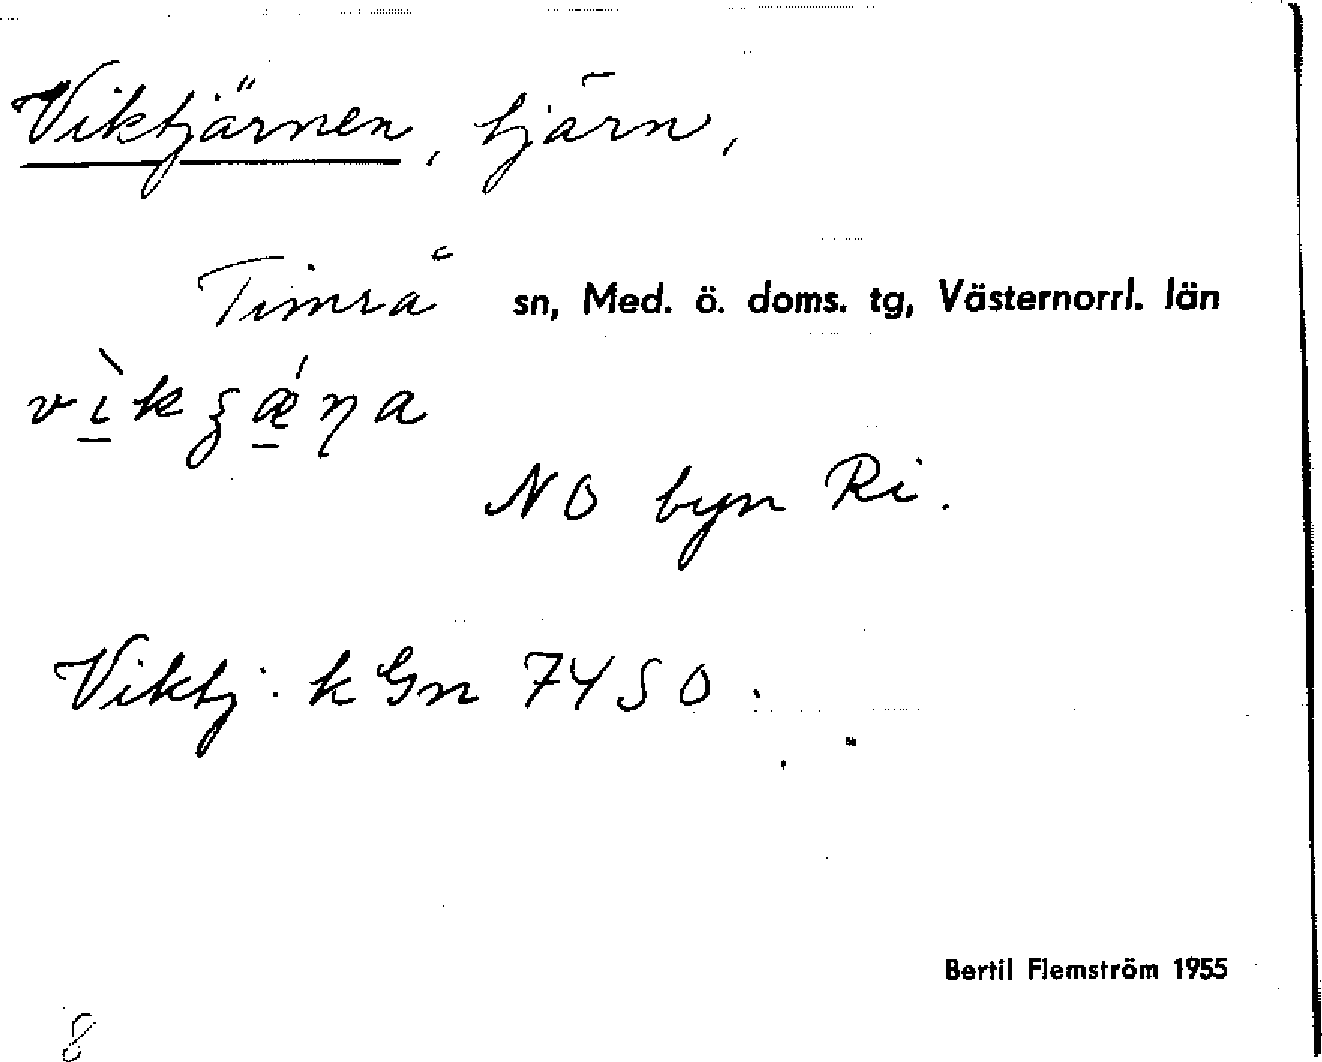 Viktjärnen, tjärn,
Timrå sn, Med. ö. doms. tg, Västernorrl. län
NO byn Ri.
Viktj. k Gn 74 SO.
Bertil Flemström 1955
8